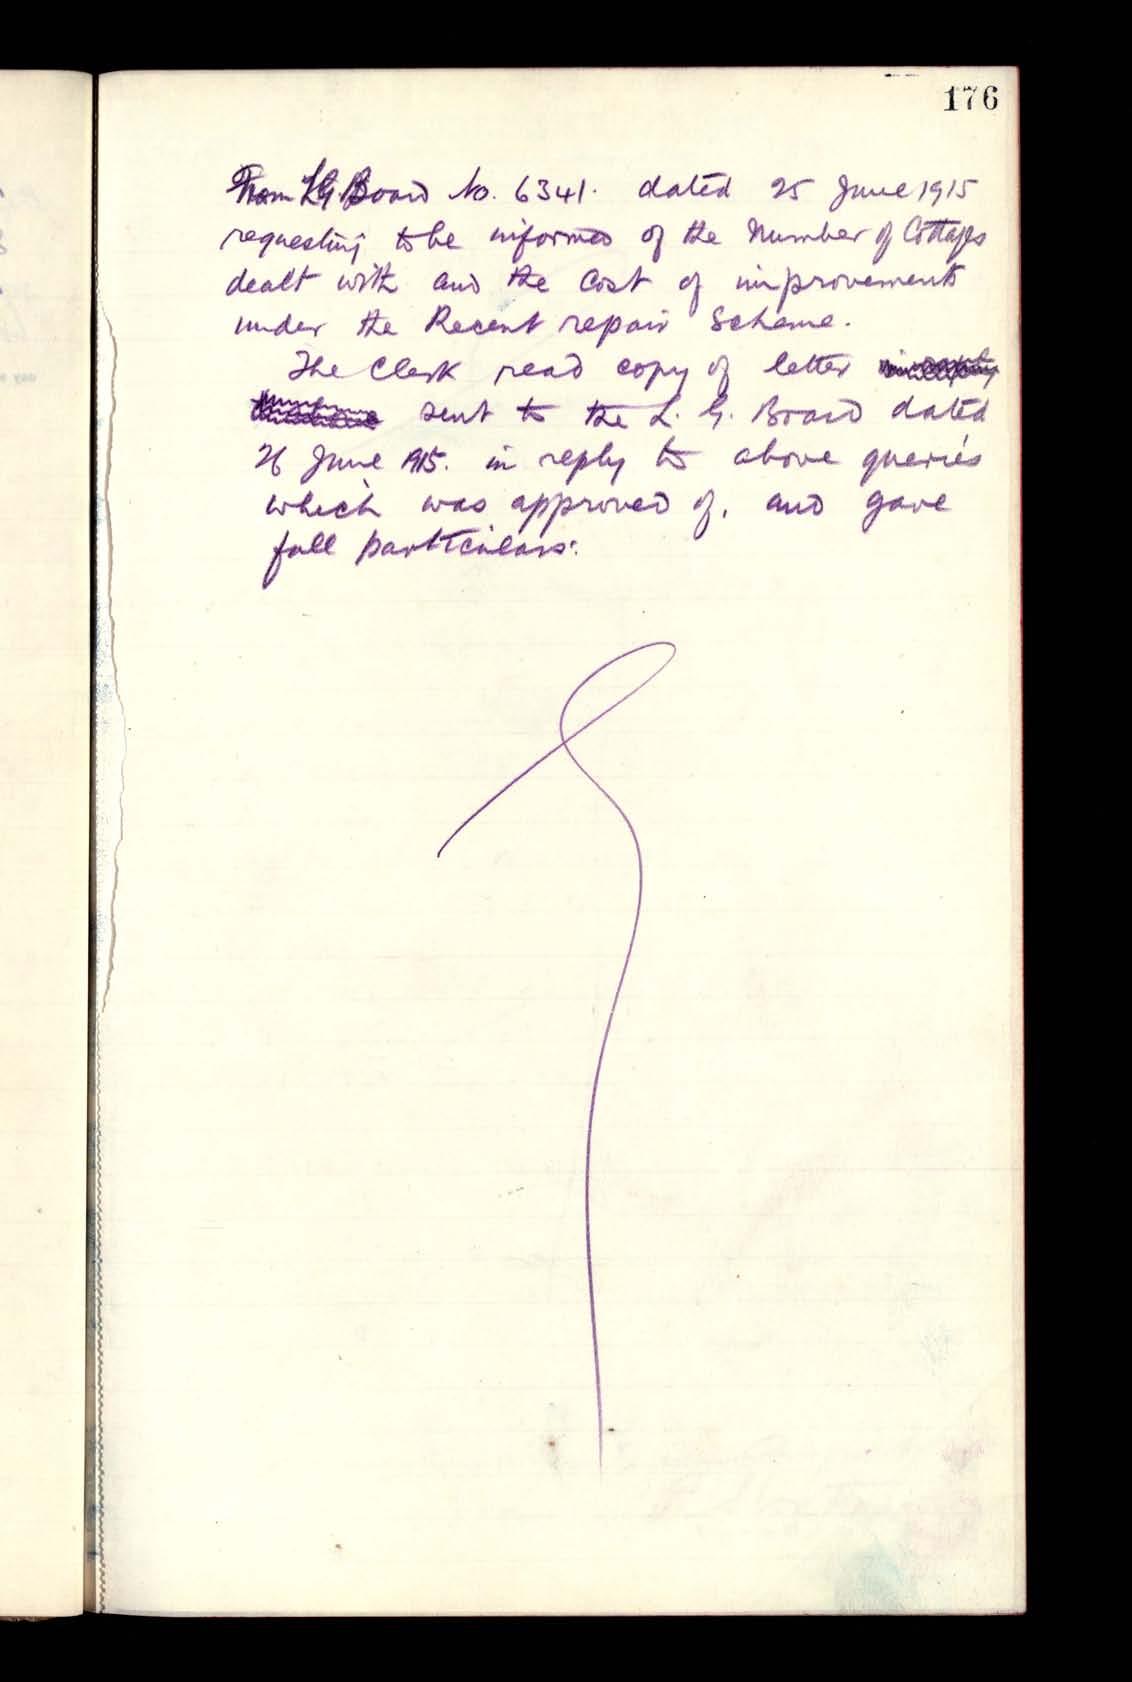 176
From L.G. Board No. 6341. dated 25 June 1915
requesting to be informed of the Number of Cottages
dealt with and the Cost of improvements
under the Recent repair Scheme.
The Clerk read copy of letter
sent to the L. G. Board dated
26 June 1915. in reply to above queries
which was approved of, and gave
full particulars.